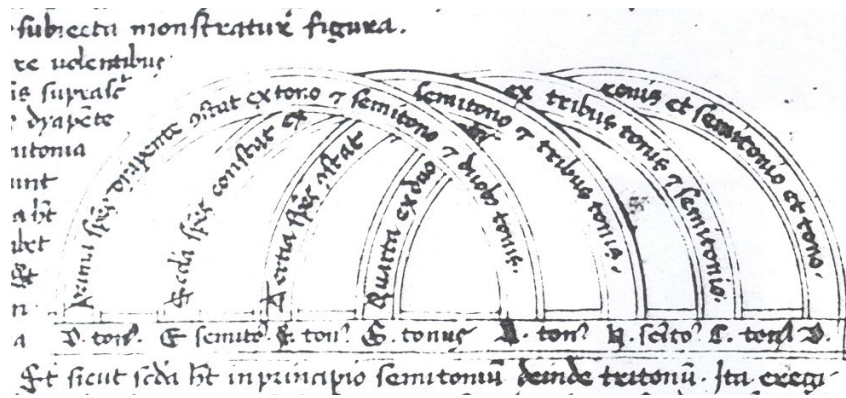 subiecta monstratur figura.
re uolentibus
is suprasc̄
dyapēte
mitonia
unt
a ht̄
abet
Prima sp̄es dyapente ɔstat ex tono ⁊ semitono ⁊ duob⁹ tonis.
Scd̄a sp̄es constat ex semitono ⁊ tribus tonis.
Tertia sp̄es ɔstat ex tribus tonis ⁊ semitonio.
Quarta ex duo tonis et semitonio et tono.
a D. ton⁹. E semito⁹. F. ton⁹. G. tonus A. ton⁹. H. semito⁹. C. ton⁹. D.
Et sicut scd̄a ht̄ in principio semitoniū deinde tritonū. Ita eregi